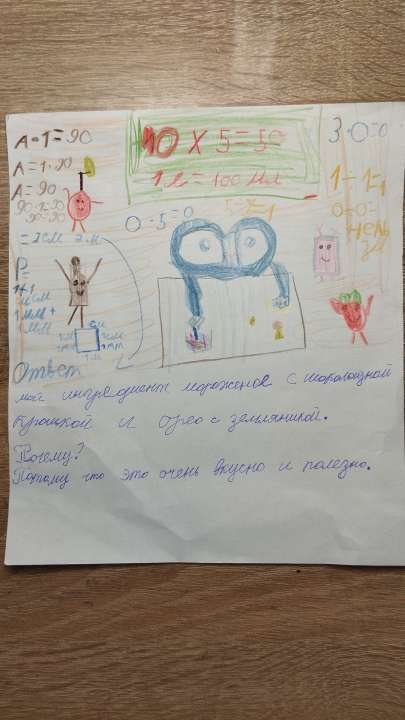 А·1=90
А=1·90
А=90
90·1=90
90=90
10 х 5=50
1л=100 мл
3·0=0
0·5=0
1-1
0-0=
нель
зя
P=
Ответ
мой ингредиент мороженое с шоколадной
крошкой и орео с земляникой.
Почему?
Потому что это очень вкусно и полезно.